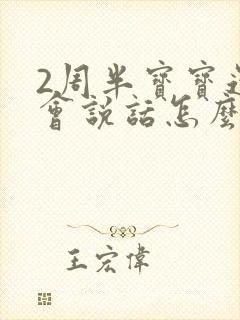 2周半寶寶
會說話怎麼
王宏偉